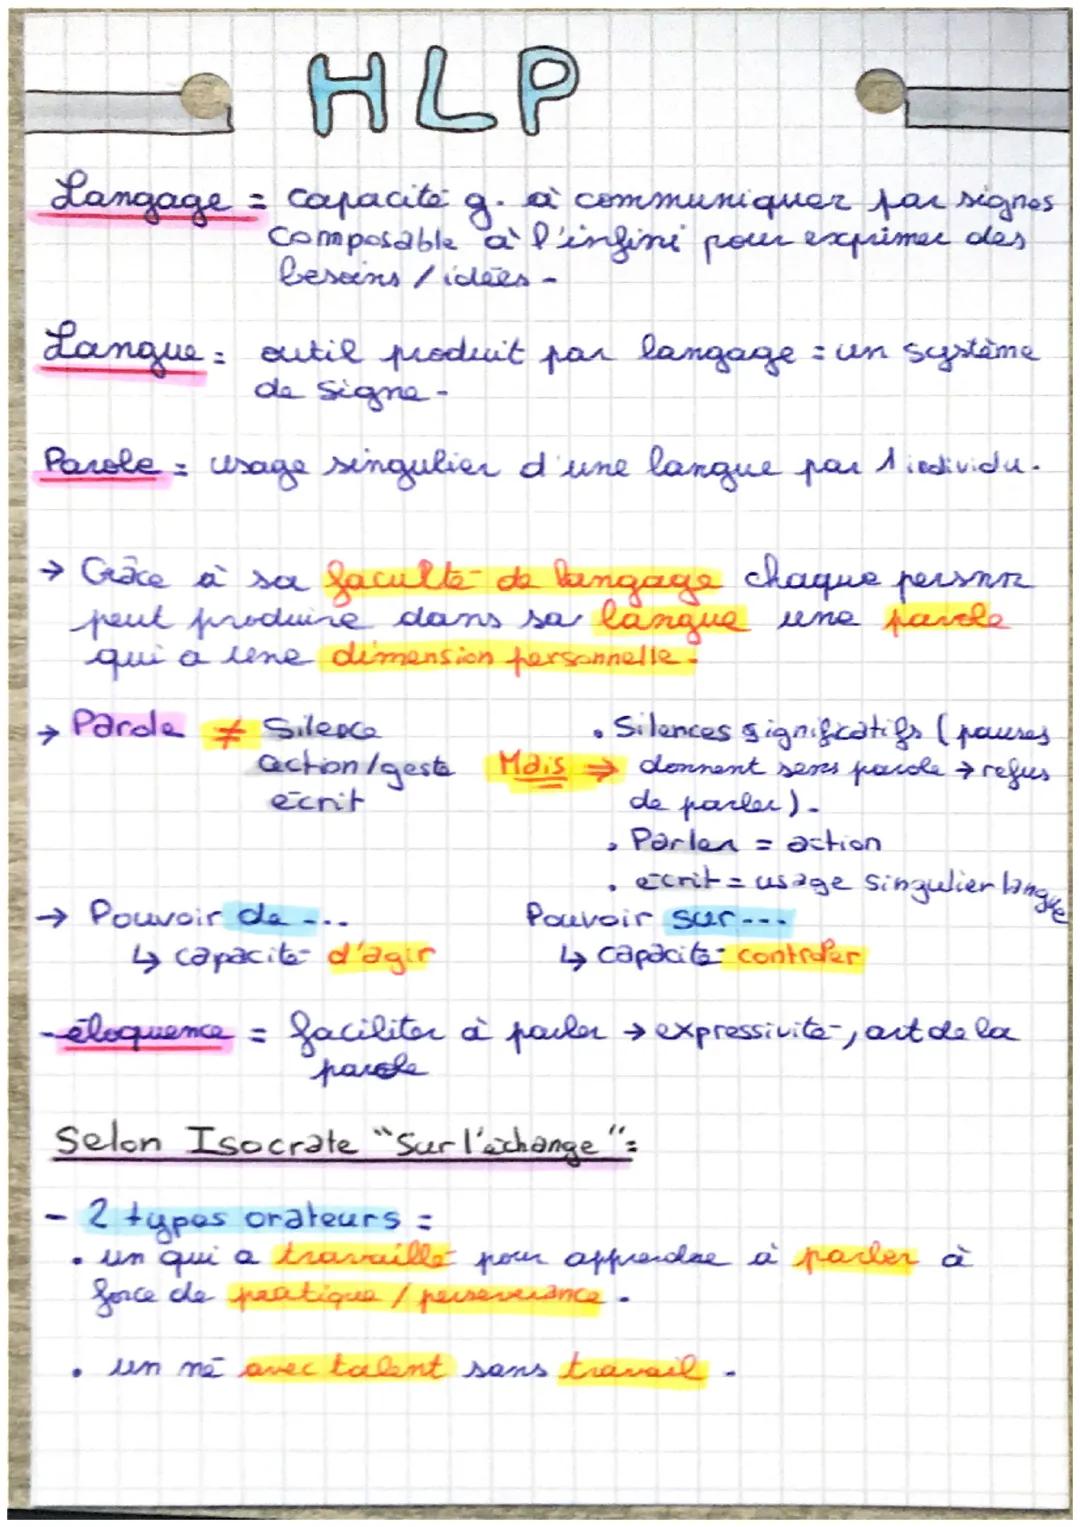 HLP
Langage = capacité g. à communiquer par signes
composable à l'infini pour exprimer des
besoins / idées -
Langue = outil produit par langage = un système
de signe -
Parole = usage singulier d'une langue par 1 individu.
→ Grâce à sa faculté de langage chaque personn
peut produire dans sa langue une parole
qui a une dimension personnelle.
→ Parole ≠ Silence
action/geste
écrit
Mais ⇒
• Silences significatifs (pauses
donnent sens parole → refus
de parler).
• Parler = action
• écrit = usage singulier langue
→ Pouvoir de ...
↳ capacité d'agir
Pouvoir sur...
↳ capacité contrôler
- éloquence = faciliter à parler → expressivité, art de la
parole
Selon Isocrate "Sur l'échange" :
- 2 types orateurs =
• un qui a travaillé pour apprendre à parler à
force de pratique / perseverance.
• un né avec talent sans travail.